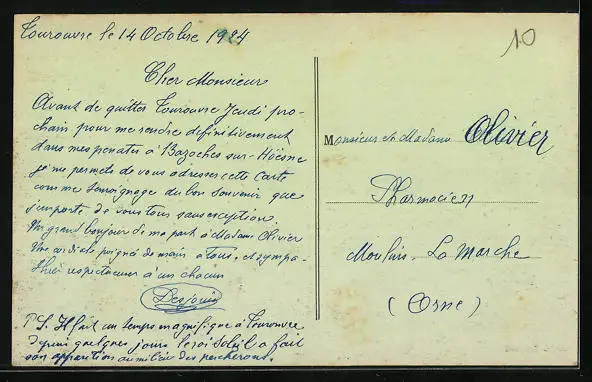 Tourouvre le 14 Octobre 1924
10
Cher Monsieur
Avant de quitter Tourouvre Jeudi pro-
chain pour me rendre définitivement
dans mes penates à Bazoches-sur-Hoësne
je me permets de vous adresser cette carte
comme témoignage du bon souvenir que
j'emporte de vous tous sans exception.
Un grand bonjour de ma part à Madame Olivier
Une cordiale poignée de main à tous, et sympa-
respectueux à un chacun
P.S. Il fait un temps magnifique à Tourouvre
depuis quelques jours le roi Soleil a fait
son apparition au milieu des percherons.
Monsieur et Madame Olivier
Pharmacien
Moulins-La Marche
(Orne)